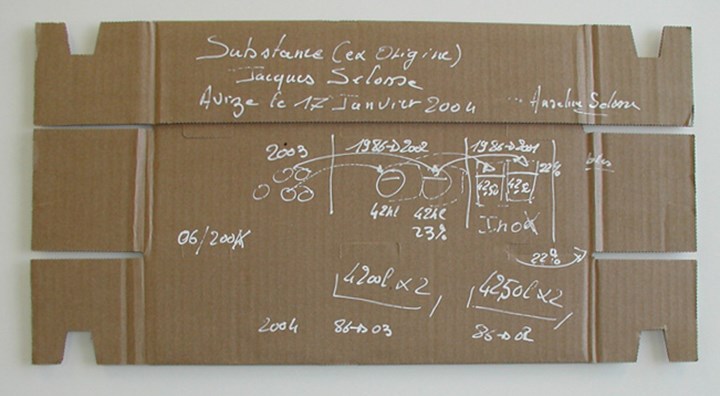 Substance (ex Origine)
Jacques Selosse
Avize le 17 Janvier 2004 ... Anselme Selosse
2003 1986→2002 1986→2001
22%
42hl 42hl
23%
Inox
06/200
22%
4200l x2 4250l x2
2004 86→03 86→02